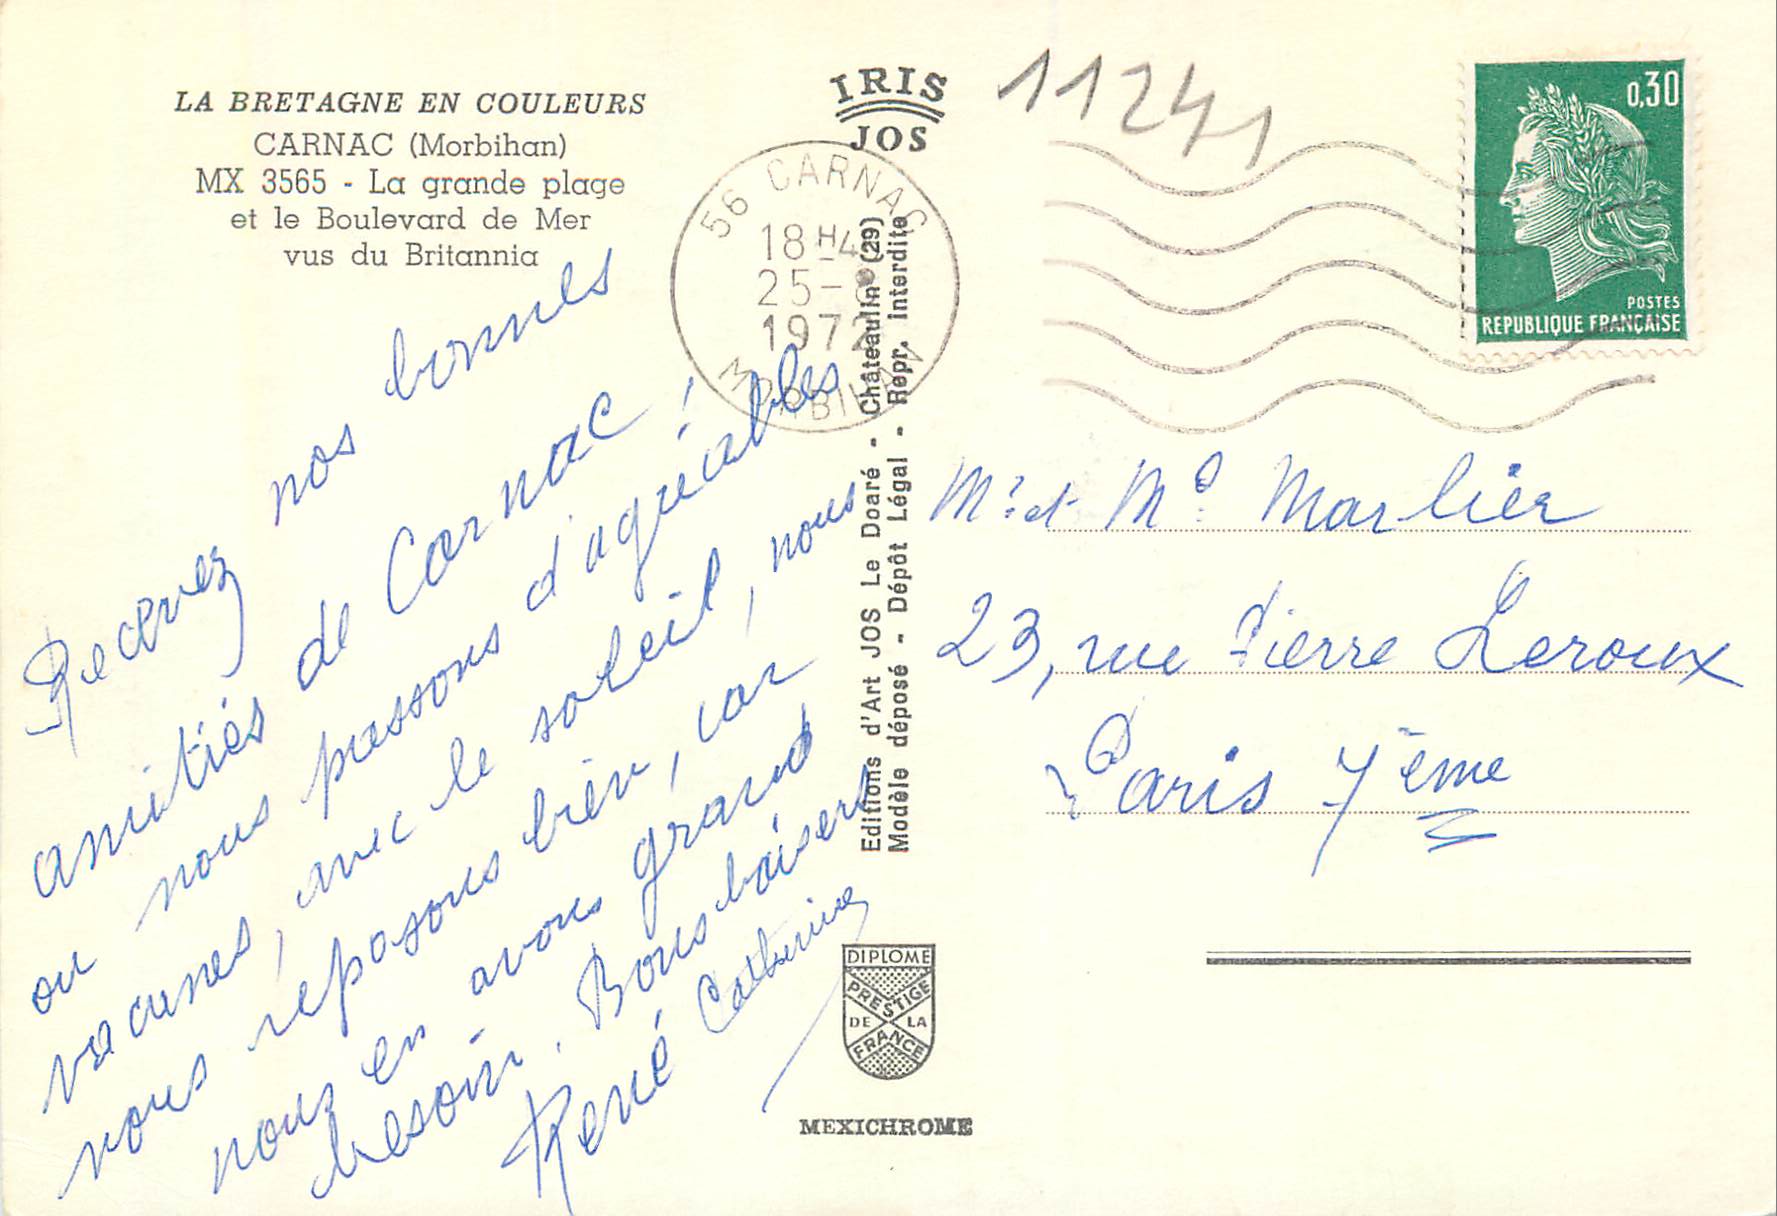 LA BRETAGNE EN COULEURS
CARNAC (Morbihan)
MX 3565 - La grande plage
et le Boulevard de Mer
vus du Britannia
Recevez nos bonnes
amitiés de Carnac,
ou nous passons d'agréables
vacances, avec le soleil, nous
nous reposons bien, car
nous en avons grand
besoin. Bons baisers
René Catherine
IRIS
JOS
56 CARNAC
18H4
25-
1972
MORBIHAN
Editions d'Art JOS Le Doaré - Châteaulin (29)
Modèle déposé - Dépôt Légal - Repr. Interdite
DIPLOME
PRESTIGE
DE LA
FRANCE
MEXICHROME
11241
0,30
POSTES
REPUBLIQUE FRANÇAISE
Mr et Me Marlier
23, rue Pierre Leroux
Paris 7ème